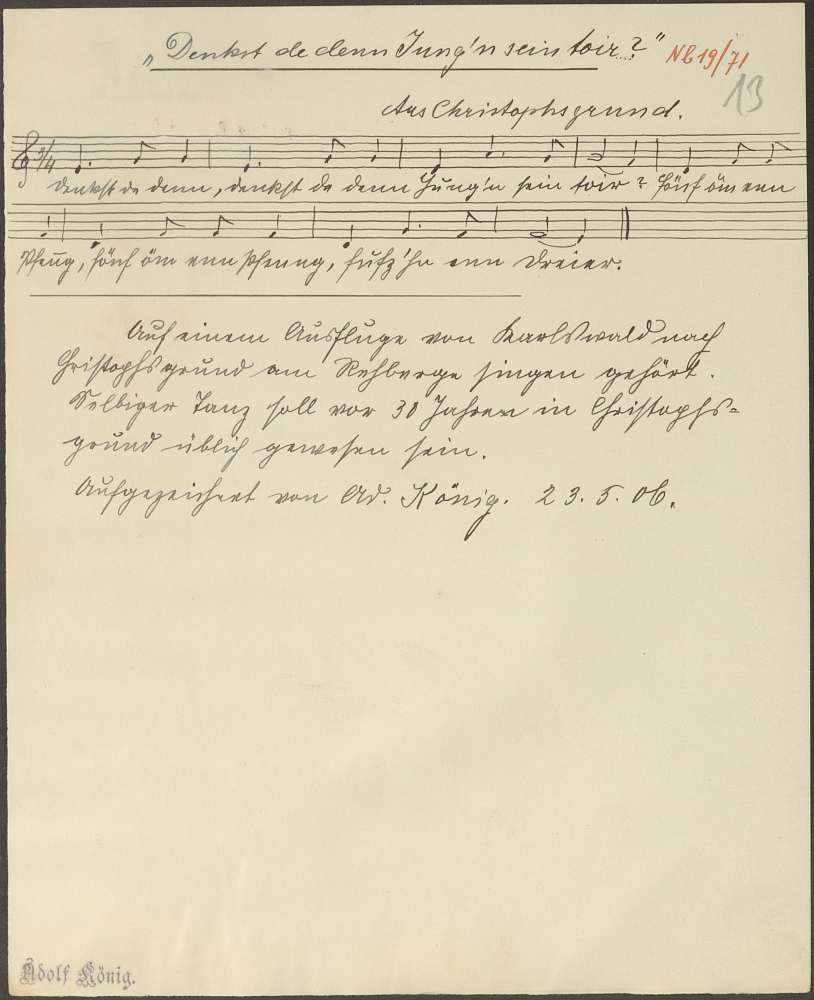 „Denkst de denn Jung'n sein toir?"
Nb 19/71
13
Aus Christophsgrund.
3/4
Denkst de denn, denkst de denn Jung'n sein toir? Fönf öm enn
Pfeng, fönf öm enn Pfenng, fufz'hn enn Dreier.
Auf einem Ausfluge von Karlswald nach
Christophsgrund am Rehberge singen gehört.
Selbiger Tanz soll vor 30 Jahren in Christophs-
grund üblich gewesen sein.
Aufgezeichnet von Ad. König. 23.5.06.
Adolf König.